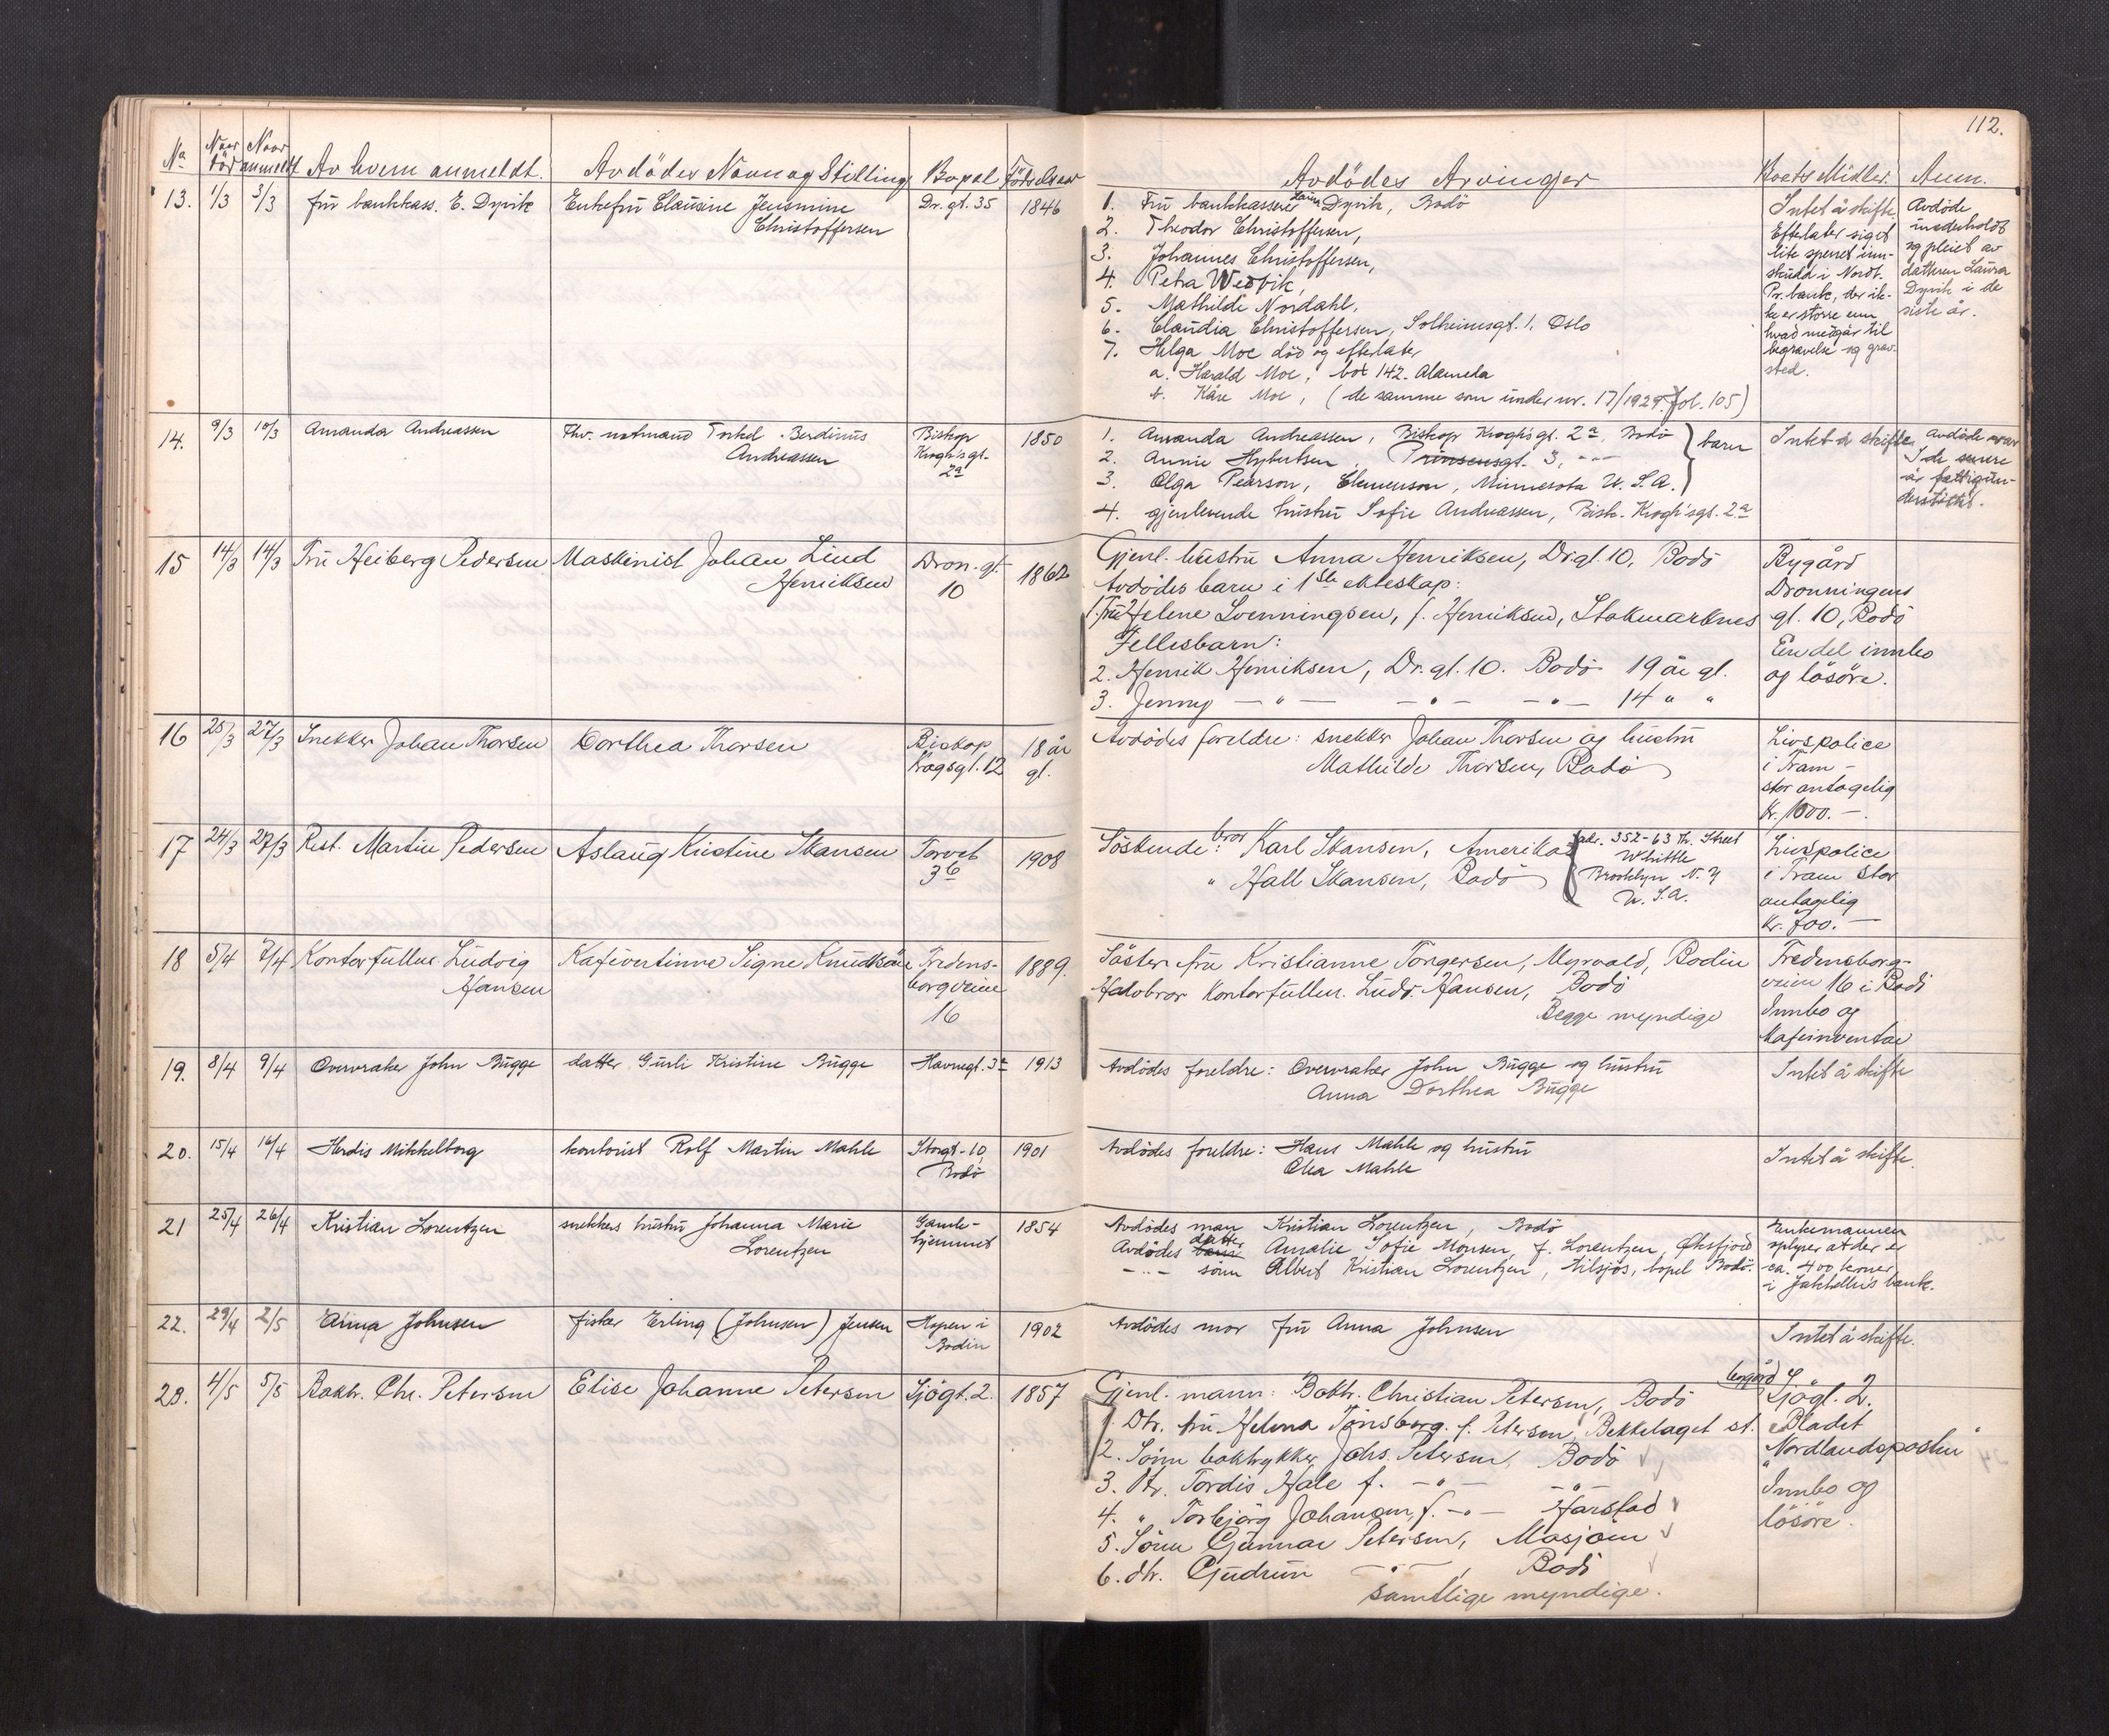 112.
No Naar död Naar anmeldt Av hvem anmeldt. Avdödes Navn og Stilling Bopæl Födselsaar Avdödes Arvinger Boets Midler. Anm.
13. 1/3 3/3 fru bankkass. E. Dyvik Enkefru Clausine Jensmine Dr. gt. 35 1846
Christoffersen
1. Fru bankkasserer Laura Dyvik, Bodö
2. Theodor Christoffersen,
3. Johannes Christoffersen,
4. Petra Wedvik,
5. Mathilde Nordahl,
6. Claudia Christoffersen, Solheimsgt. 1. Oslo
7. Helga Moe död og efterlater
a. Harald Moe, box 142. Alameda
b. Kåre Moe, (de samme som under nr. 17/1929. fol. 105)
Intet å skifte.
Efterlater siget
lite sperret inn-
skudd i Nordl.
Pr. bank, der ik-
ke er större enn
hvad medgår til
begravelse og grav-
sted.
Avdöde
underholdt
og pleiet av
datteren Laura
Dyvik i de
siste år.
14. 9/3 10/3 Amanda Andreassen Fhv. notmand Torkel Berdinus Biskop 1850
Andreassen Krogh's gt.
2a
1. Amanda Andreassen, Biskop Krogh's gt. 2a, Bodö
2. Annie Hybertsen, Prinsensgt. 3, - " -
3. Olga Pearson, Clemenson, Minnesota U. S. A. } barn
4. gjenlevende hustru Sofie Andreassen, Bisk. Krogh's gt. 2a
Intet å skifte
Avdöde var
I de senere
år fattigun-
derstöttet.
15 14/3 14/3 Fru Heiberg Pedersen Maskinist Johan Lind Dron. gt. 1862
Henriksen 10
Gjenl. hustru Anna Henriksen, Dr.gt. 10, Bodö
Avdödes barn i 1ste ekteskap:
1. Fru Helene Svenningsen, f. Henriksen, Stokmarknes
Fellesbarn:
2. Henrik Henriksen, Dr. gt. 10. Bodö 19 år gl.
3. Jenny — " — — " — — " — 14 " "
Bygård
Dronningens
gt. 10, Bodö
En del innbo
og lösöre.
16 25/3 27/3 Snekker Johan Thorsen Dorthea Thorsen Biskop 18 år
Krogsgt. 12 gl.
Avdödes foreldre: snekker Johan Thorsen og hustru
Mathilde Thorsen, Bodö
Livspolice
i Fram -
stor antagelig
kr. 1000. -.
17 24/3 27/3 Rest. Martin Pedersen Aslaug Kristine Skansen Torvet 1908
3b
Söskende: bror Karl Skansen, Amerika { adr. 352 - 63 Th. Street
" Hall Skansen, Bodö
Whittle
Brooklyn N. Y
U. S. A.
Livspolice
i Fram stor
antagelig
kr. 700. —
18 5/4 7/4 Kontorfullm. Ludvig Kafévertinne Signe Knudsön Fredens- 1889.
Hansen borgveien
16
Söster fru Kristianne Torgersen, Myrvold, Bodin
Halvbror Kontorfullm. Ludv. Hansen, Bodö
Begge myndige
Fredensborg-
veien 16 i Bodö
Innbo og
Kafeinventar
19. 8/4 9/4 Overvraker John Bugge datter Gurli Kristine Bugge Havnegt. 3a 1913
Avdödes foreldre: Overvraker John Bugge og hustru
Anna Dorthea Bugge
Intet å skifte
20. 15/4 16/4 Herdis Mikkelborg kontorist Rolf Martin Mahle Storgt - 10, 1901
Bodö
Avdödes foreldre: Hans Mahle og hustru
Olea Mahle
Intet å skifte.
21 25/4 26/4 Kristian Lorentzen snekkers hustru Johanna Marie Gamle- 1854
Lorentzen hjemmet
Avdödes man Kristian Lorentzen, Bodö
Avdödes barn datter Amalie Sofie Monsen, f. Lorentzen, Öksfjord
- " - sönn Albert Kristian Lorentzen, tilsjös, bopel Bodö.
Enkemannen
oplyser at der er
ca. 400 kroner
i Jakhelln's bank.
22. 29/4 2/5 Anna Johnsen fisker Erling (Johnsen) Jensen Hopen i 1902
Bodin
Avdödes mor fru Anna Johnsen
Intet å skifte.
23. 4/5 5/5 Boktr. Chr. Petersen Elise Johanne Petersen Sjögt. 2. 1857
Gjenl. mann: Boktr. Christian Petersen, Bodö
1. Dtr. fru Helma Tönsberg f. Petersen, Bekkelaget st.
2. Sönn boktrykker Johs. Petersen, Bodö
3. Dtr. Tordis Hale f. - " - - " -
4. " Torbjörg Johansen, f. - " - Harstad
5. Sönn Gunnar Petersen, Mosjöen
6. dtr. Gudrun - " -, Bodö
samtlige myndige.
bygård Sjögt. 2.
Bladet
"Nordlandsposten"
Innbo og
lösöre.